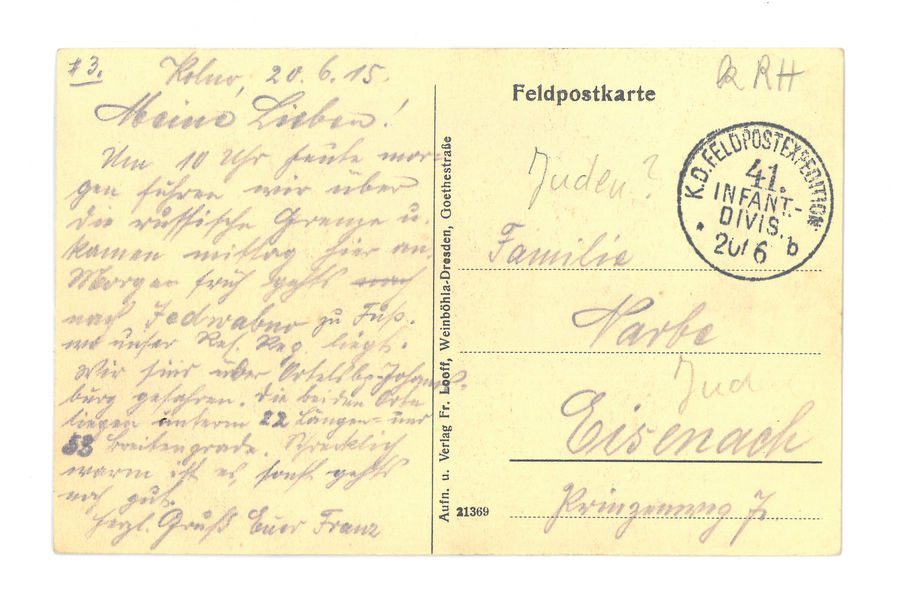 # 3.
Kolno, 20.6.15.
Meine Lieben!
Um 10 Uhr heute mor-
gen fuhren wir über
die russische Grenze u.
kamen mittag hier an.
Morgen früh gehts nach
nach Jedwabno zu Fuß.
wo unser Res. Reg. liegt.
Wir sind über Ortelsb.-Johannis-
burg gefahren. Die beiden Orte
liegen unterm 22 Längen- und
53 Breitengrade. Schrecklich
warm ist es, sonst gehts
noch gut.
Herzl. Gruß Euer Franz
Aufn. u. Verlag Fr. Looff, Weinböhla-Dresden, Goethestraße
Feldpostkarte
RH
K.D. FELDPOSTEXPEDITION
41.
INFANT.-
DIVIS.
* 20/6 b
Juden?
Familie
Narbe
Jud
Eisenach
Prinzenweg 7.
21369